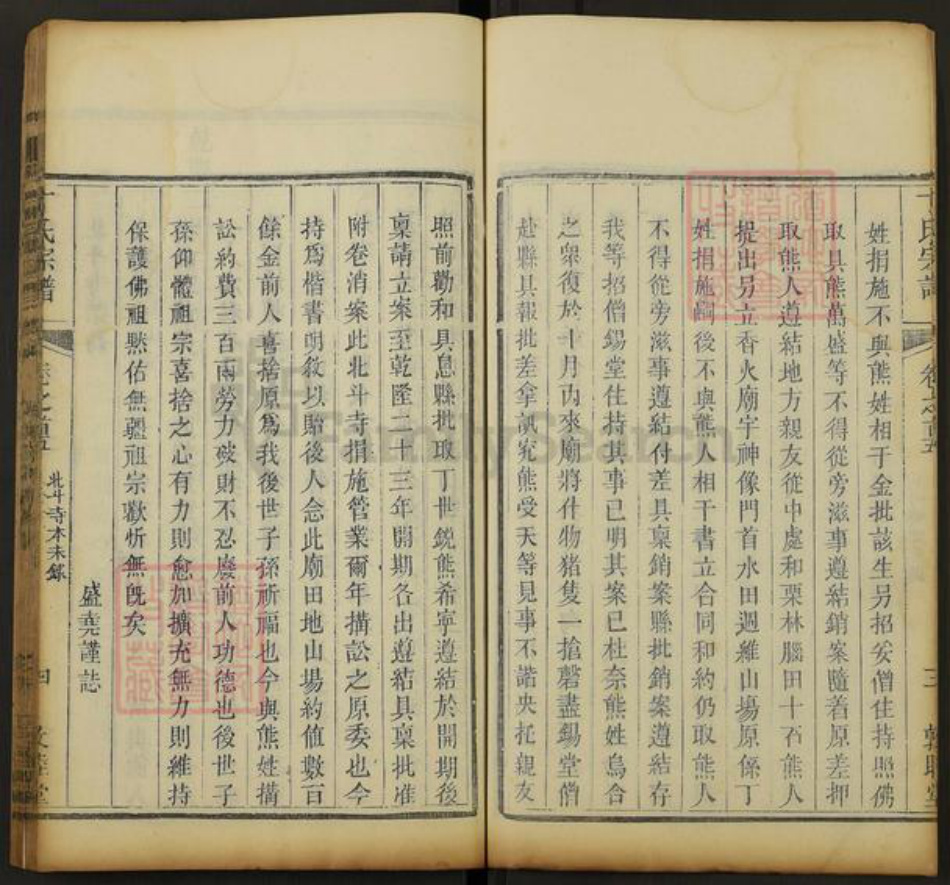 姓捐施不與熊姓相于金批該生另招妥僧住持照佛
取具熊萬盛等不得從旁滋事遵結銷案隨着原差押
取熊人遵結地方親友從中處和栗林腦田十石熊人
提出另立香火廟宇神像門首水田週維山場原係丁
姓捐施嗣後不與熊人相干書立合同和約仍取熊人
不得從旁滋事遵結付差具稟銷案縣批銷案遵結存
我等招僧錫堂住持其事已明其案已杜奈熊姓烏合
之眾復於十月內來廟將什物猪隻一搶磬盡錫堂僧
赴縣具報批差拿訊究熊受天等見事不諧央托親友
丁氏宗譜 卷之首五 三 敦睦堂
照前勸和具息縣批取丁世銳熊希寧遵結於開期後
稟請立案至乾隆二十三年開期各出遵結具稟批准
附卷消案此北斗寺捐施管業爾年搆訟之原委也今
持爲楷書明敘以貽後人念此廟田地山場約值數百
餘金前人喜捨原爲我後世子孫祈福也今與熊姓搆
訟約費三百兩勞力破財不忍廢前人功德也後世子
孫仰體祖宗喜捨之心有力則愈加擴充無力則維持
保護佛祖默佑無疆祖宗歡忻無旣矣
盛堯謹誌
氏宗譜 卷之首五 北斗寺本末錄 四 敦睦堂
FamilySearch